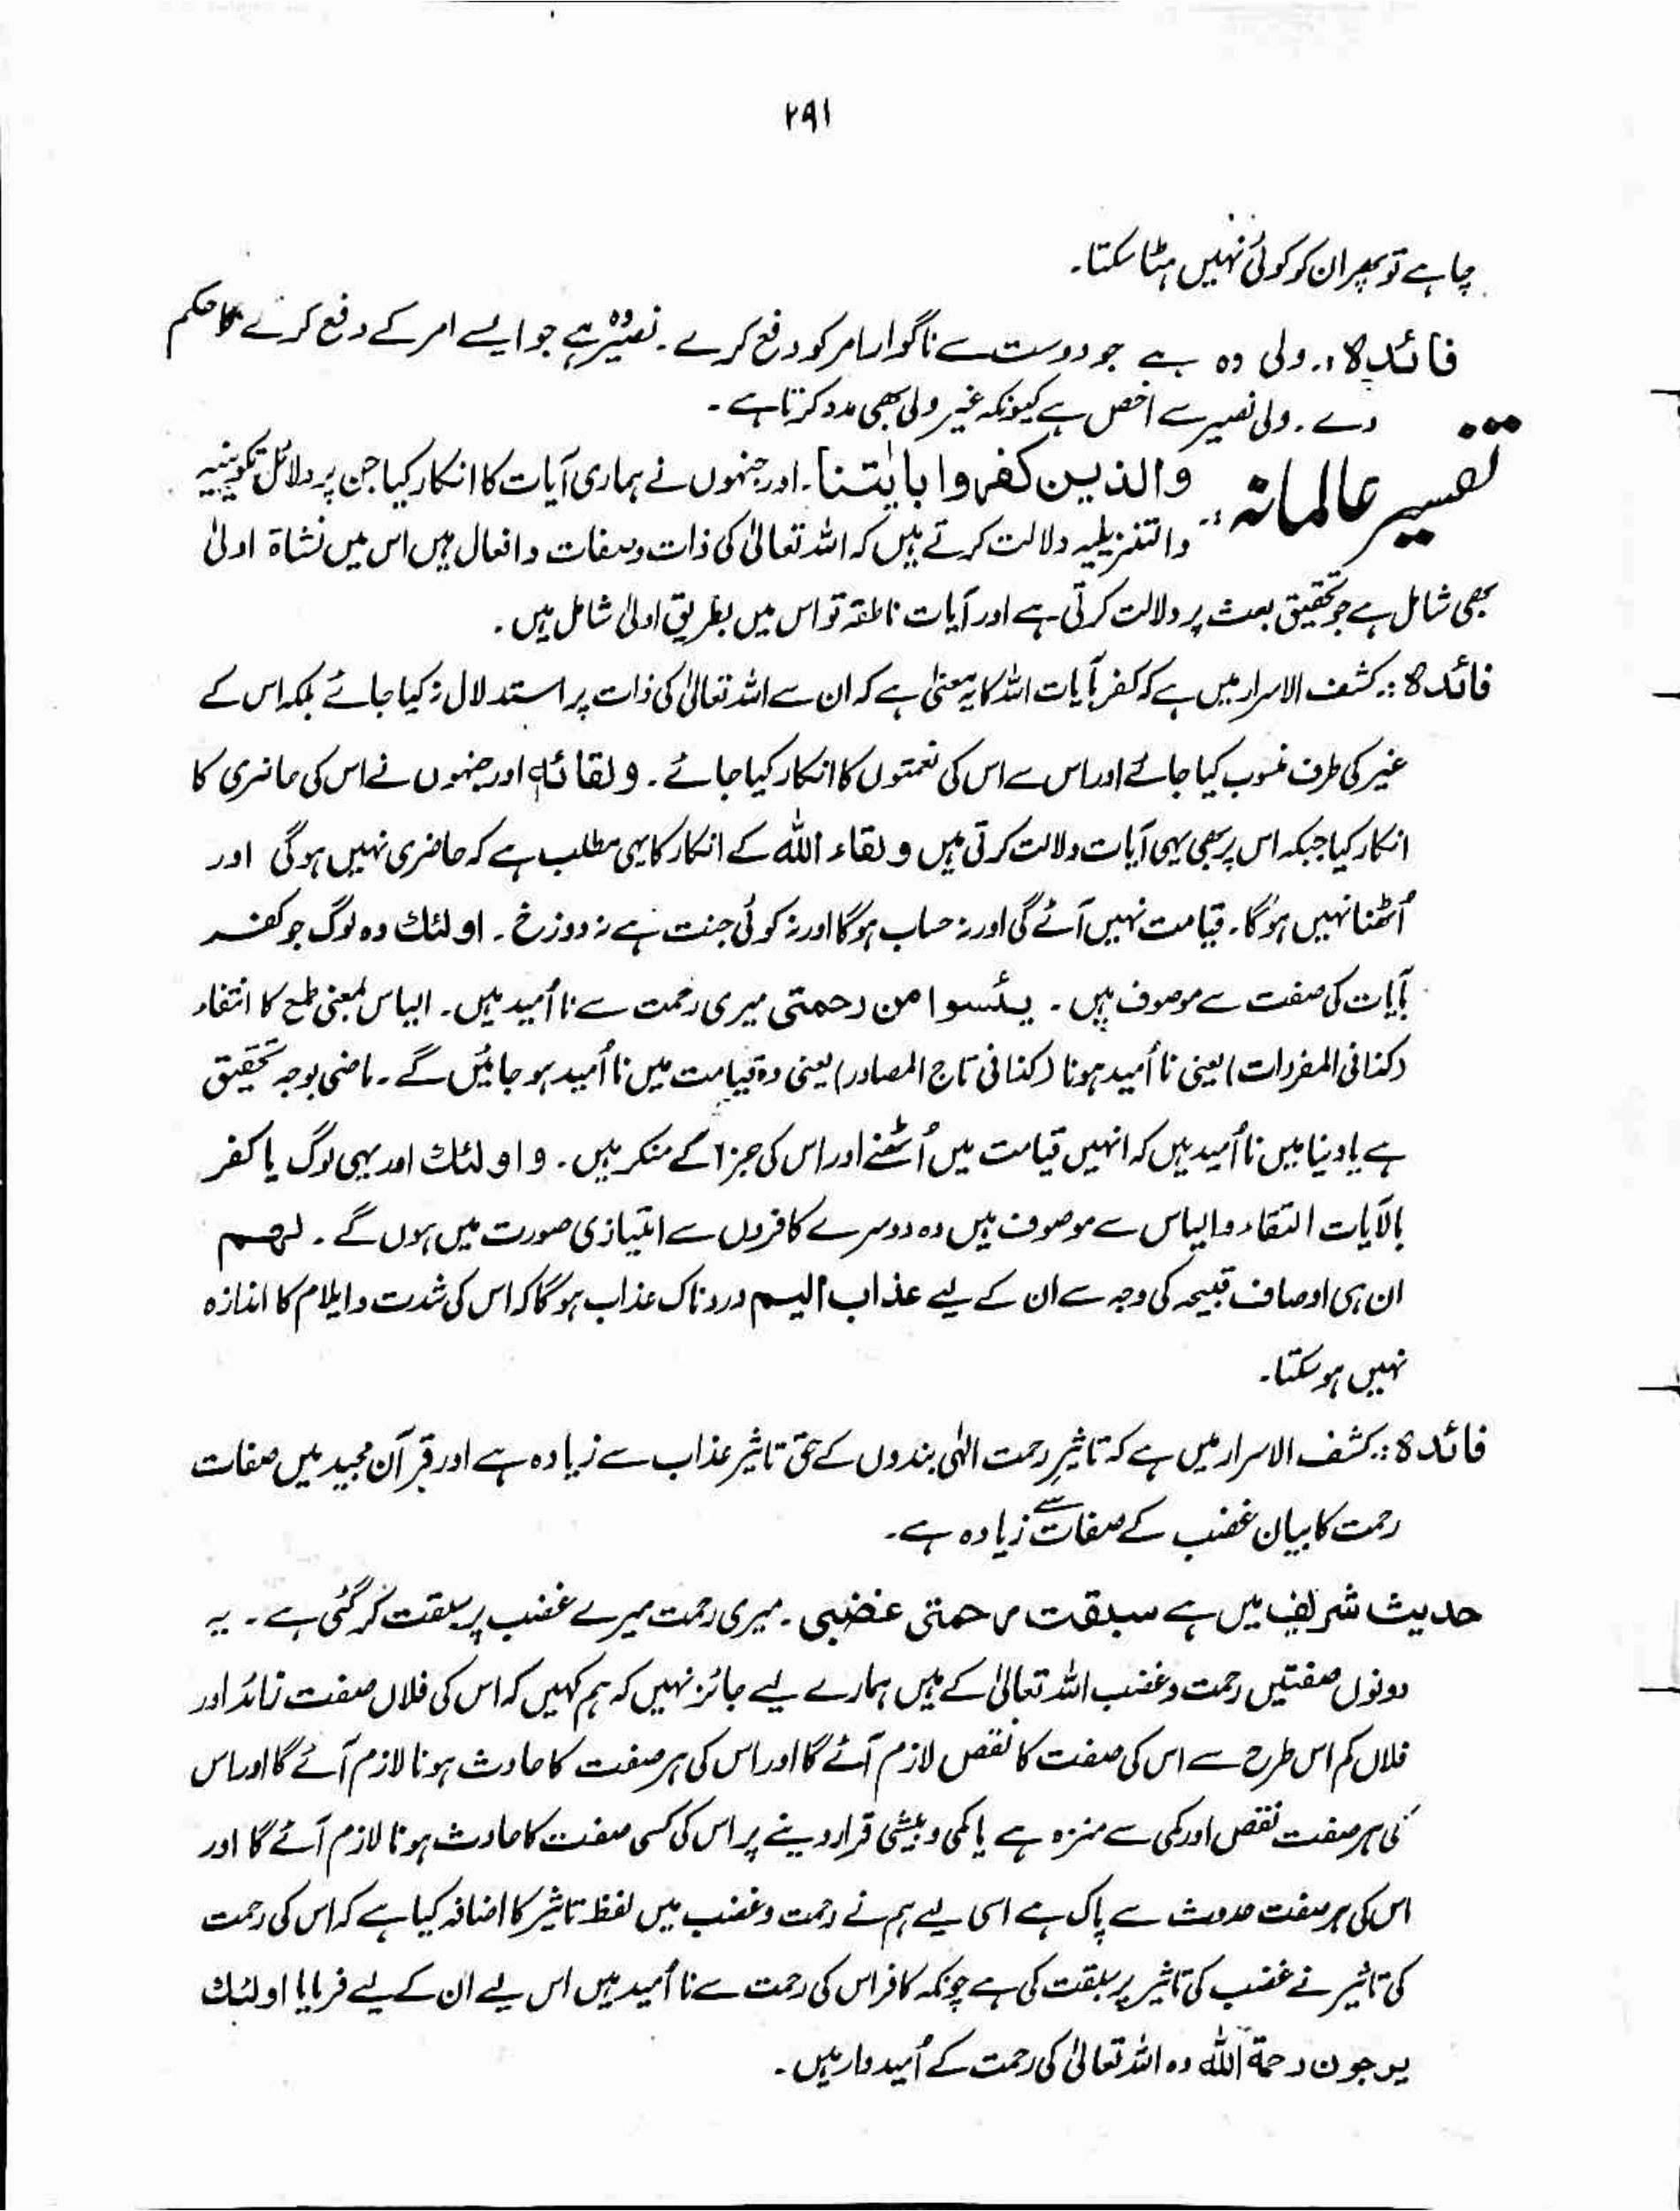 ۲۹۱
چاہے تو پھر ان کو کوئی نہیں ہٹا سکتا۔
فائدہ:۔ ولی وہ ہے جو دوست سے ناگوار امر کو دفع کرے۔ نصیر وہ ہے جو ایسے امر کے دفع کرنے کا حکم
دے۔ ولی نصیر سے اخص ہے کیونکہ غیر ولی بھی مدد کرتا ہے۔
تفسیر عالمانہ:۔ والذین کفروا بایٰتنا۔ اور جنہوں نے ہماری آیات کا انکار کیا جن پر دلائل تکوینیہ
والتنزیلیہ دلالت کرتے ہیں کہ اللہ تعالیٰ کی ذات وصفات وافعال ہیں اس میں نشاۃ اولیٰ
بھی شامل ہے جو تحقیق بعث پر دلالت کرتی ہے اور آیات ناطقہ تو اس میں بطریق اولیٰ شامل ہیں۔
فائدہ:۔ کشف الاسرار میں ہے کہ کفر بآیات اللہ کا یہ معنیٰ ہے کہ ان سے اللہ تعالیٰ کی ذات پر استدلال نہ کیا جائے بلکہ اس کے
غیر کی طرف منسوب کیا جائے اور اس سے اس کی نعمتوں کا انکار کیا جائے۔ ولقائہ اور جنہوں نے اس کی حاضری کا
انکار کیا جبکہ اس پر بھی یہی آیات دلالت کرتی ہیں و لقاء اللہ کے انکار کا یہی مطلب ہے کہ حاضری نہیں ہوگی اور
اُٹھنا نہیں ہوگا۔ قیامت نہیں آئے گی اور نہ حساب ہوگا اور نہ کوئی جنت ہے نہ دوزخ۔ اولئك وہ لوگ جو کفر
بآیات کی صفت سے موصوف ہیں۔ یئسوا من رحمتی میری رحمت سے نا اُمید ہیں۔ الیاس بمعنی طمع کا انتفاء
(کذا فی المفردات) یعنی نا اُمید ہونا (کذا فی تاج المصادر) یعنی وہ قیامت میں نا اُمید ہو جائیں گے۔ ماضی بوجہ تحقیق
ہے یا دنیا میں نا اُمید ہیں کہ انہیں قیامت میں اُٹھنے اور اس کی جزا کے منکر ہیں۔ واولئك اور یہی لوگ یا کفر
بالآیات التقاء والیاس سے موصوف ہیں وہ دوسرے کافروں سے امتیازی صورت میں ہوں گے۔ لہم
ان ہی اوصاف قبیحہ کی وجہ سے ان کے لیے عذاب الیم دردناک عذاب ہوگا کہ اس کی شدت وایلام کا اندازہ
نہیں ہوسکتا۔
فائدہ:۔ کشف الاسرار میں ہے کہ تاثیر رحمت الٰہی بندوں کے حق تاثیر عذاب سے زیادہ ہے اور قرآن مجید میں صفات
رحمت کا بیان غضب کے صفات سے زیادہ ہے۔
حدیث شریف میں ہے سبقت رحمتی غضبی۔ میری رحمت میرے غضب پر سبقت کر گئی ہے۔ یہ
دونوں صفتیں رحمت وغضب اللہ تعالیٰ کے ہیں ہمارے لیے جائز نہیں کہ ہم کہیں کہ اس کی فلاں صفت زائد اور
فلاں کم اس طرح سے اس کی صفت کا نقص لازم آئے گا اور اس کی ہر صفت کا حادث ہونا لازم آئے گا اور اس
کی ہر صفت نقص اور کمی سے منزہ ہے یا کمی وبیشی قرار دینے پر اس کی کسی صفت کا حادث ہونا لازم آئے گا اور
اس کی ہر صفت حدوث سے پاک ہے اسی لیے ہم نے رحمت وغضب میں لفظ تاثیر کا اضافہ کیا ہے کہ اس کی رحمت
کی تاثیر نے غضب کی تاثیر پر سبقت کی ہے چونکہ کافر اس کی رحمت سے نا اُمید ہیں اس لیے ان کے لیے فرمایا اولئك
یرجون رحمة اللّٰہ وہ اللہ تعالیٰ کی رحمت کے اُمیدوار ہیں۔